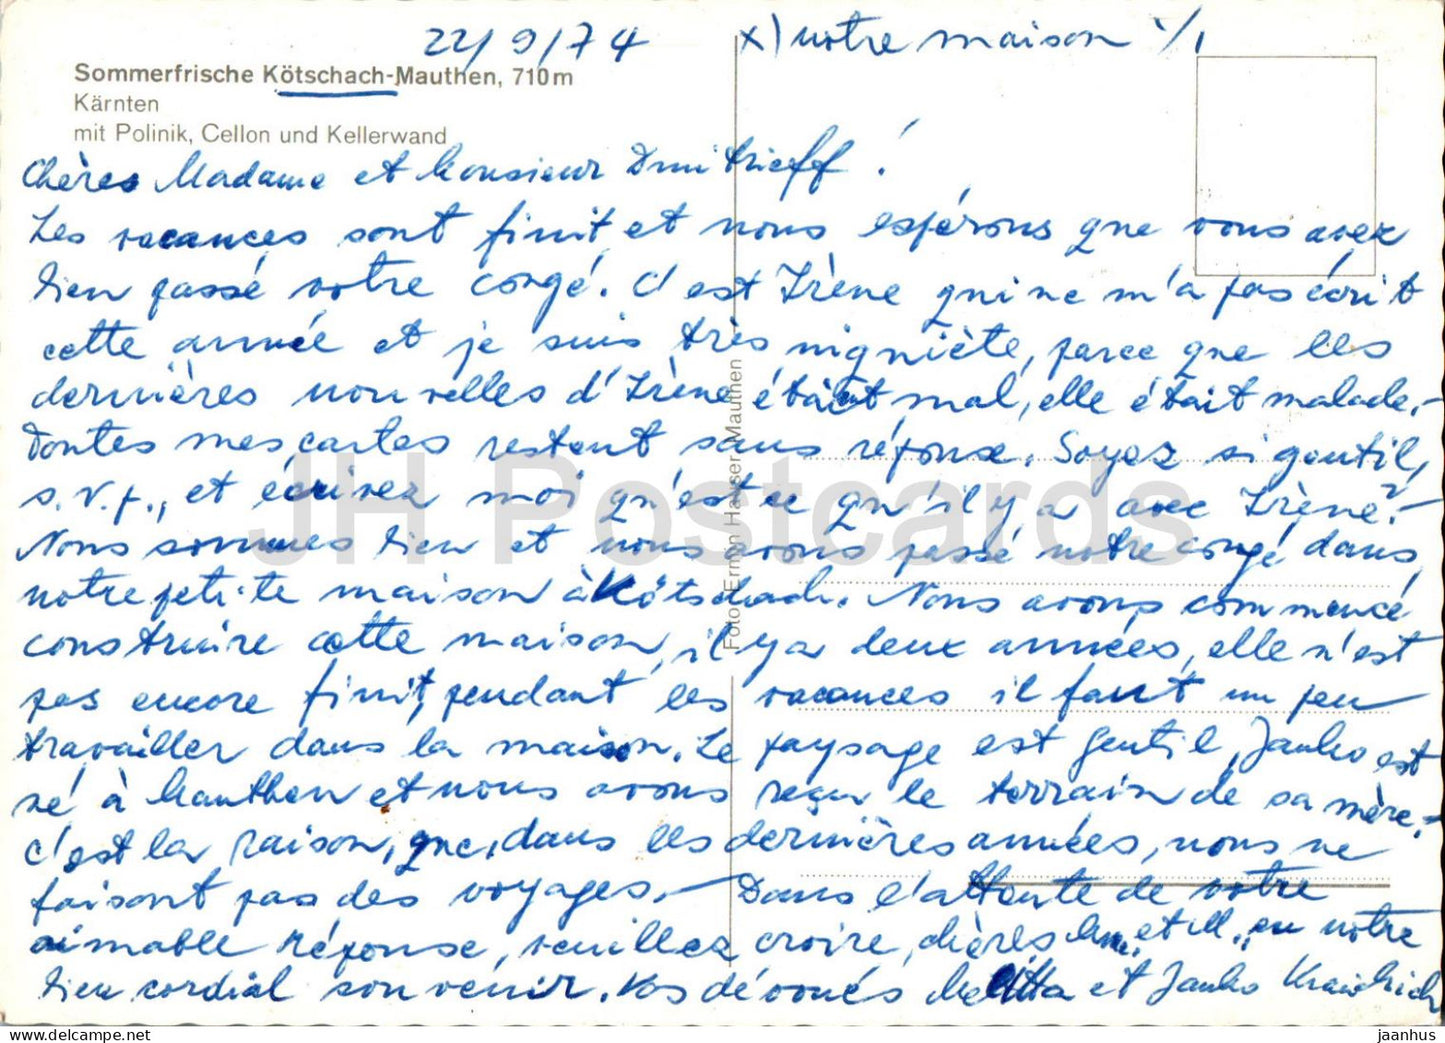 22/9/74
x) notre maison 1/1
Sommerfrische Kötschach-Mauthen, 710 m
Kärnten
mit Polinik, Cellon und Kellerwand
Chères Madame et Monsieur Dmitrieff!
Les vacances sont finit, et nous espérons que vous avez
bien passé votre congé. C'est Irène qui ne m'a pas écrit
cette année et je suis très, niquiète, parce que les
dernières nouvelles d'Irène était mal, elle était malade.–
Toutes mes cartes restent sans réponse. Soyez si gentil,
s.v.p., et écrivez moi qu'est ce qu'il y a avec Irène?–
Nous sommes bien et nous avons passé notre congé dans
notre petite maison à Kötschach. Nous avons commencé
construire cette maison, il y a deux années, elle n'est
pas encore finit, pendant les vacances il faut un peu
travailler dans la maison. Le paysage est gentil, Janko est
né à Mauthen et nous avons reçu le terrain de sa mère.–
C'est la raison, que, dans les dernières années, nous ne
faisont pas des voyages.– Dans l'attente de votre
aimable réponse, veuillez croire, chères Mme. et M., en notre
bien cordial souvenir. Vos dévoués Melitta et Janko
Foto Erwin Hauser, Mauthen
JH Postcards
delcampe.net
jaanhus